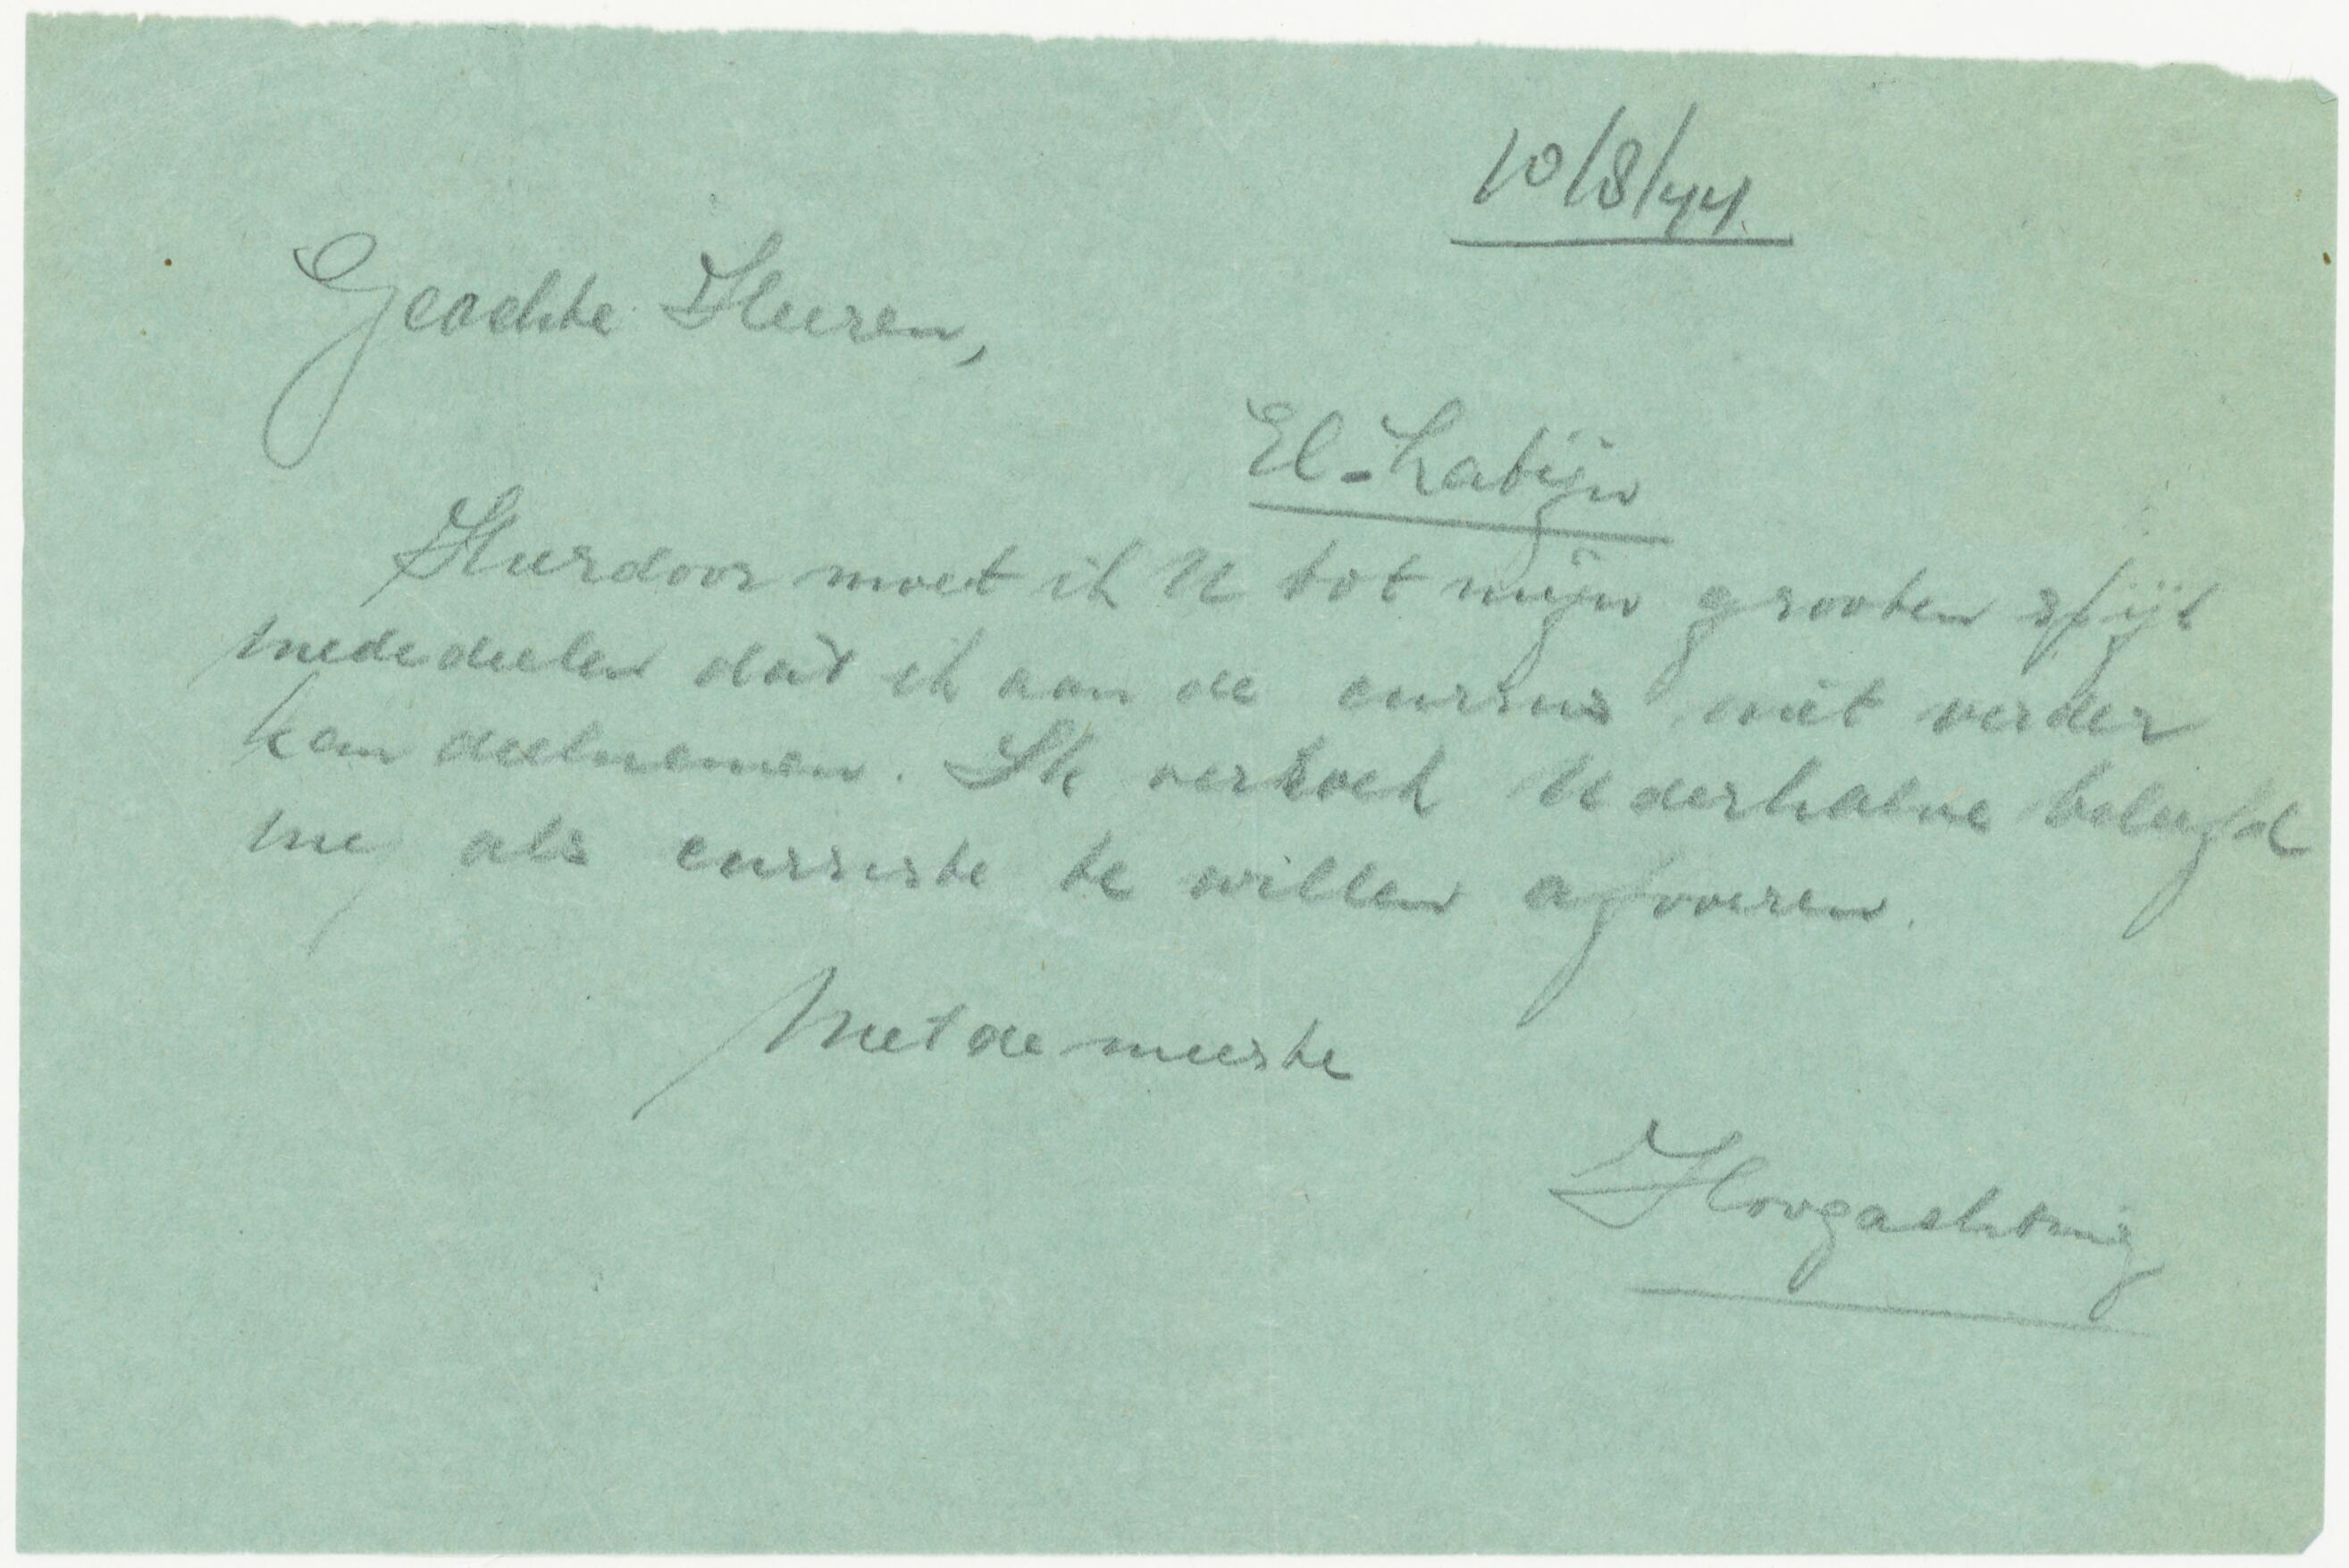 10/8/44.
Geachte Heeren,
El-Latijn
Hierdoor moet ik U tot mijn grooten spijt
mededeelen dat ik aan de cursus niet verder
kan deelnemen. Ik verzoek U derhalve beleefd
mij als cursiste te willen afvoeren.
Met de meeste
Hoogachting